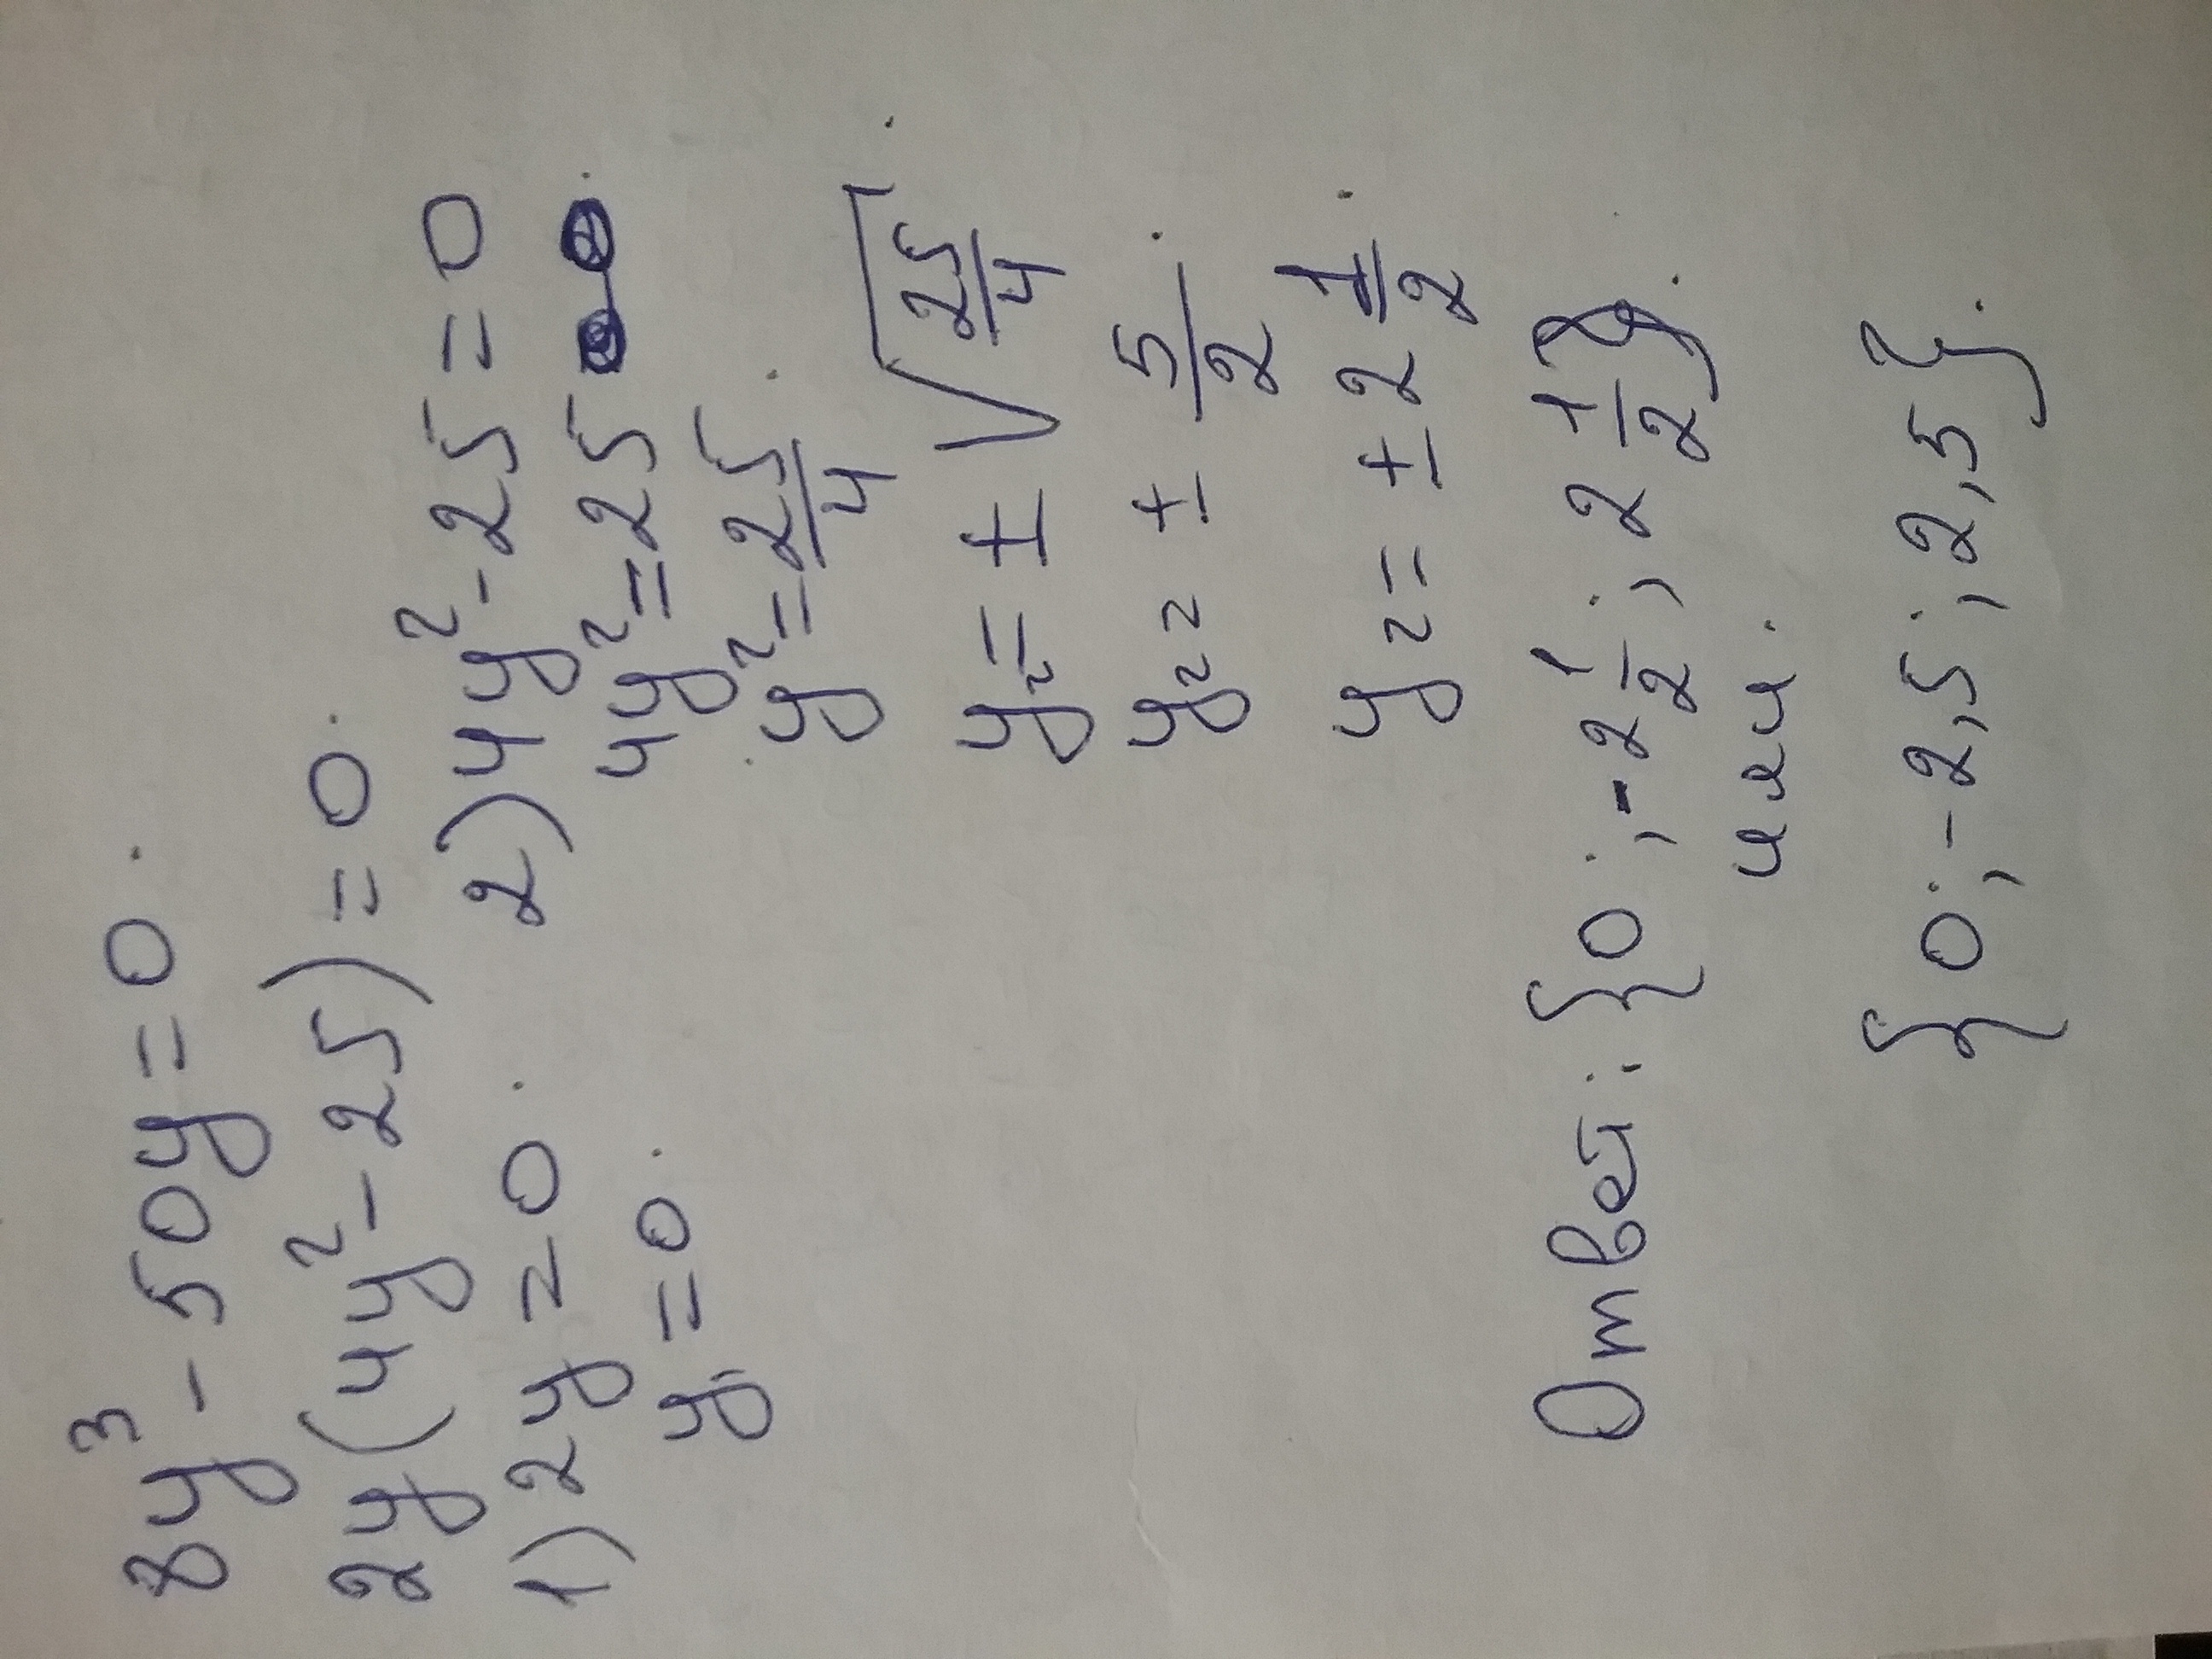 8y³ - 50y = 0.
2y(4y² - 25) = 0.
1) 2y = 0. 2) 4y² - 25 = 0
y = 0. 4y² = 25.
y² = 25/4.
y = ± √(25/4).
y = ± 5/2.
y = ± 2 1/2.
Ответ: {0; -2 1/2; 2 1/2}.
или.
{0; -2,5; 2,5}.